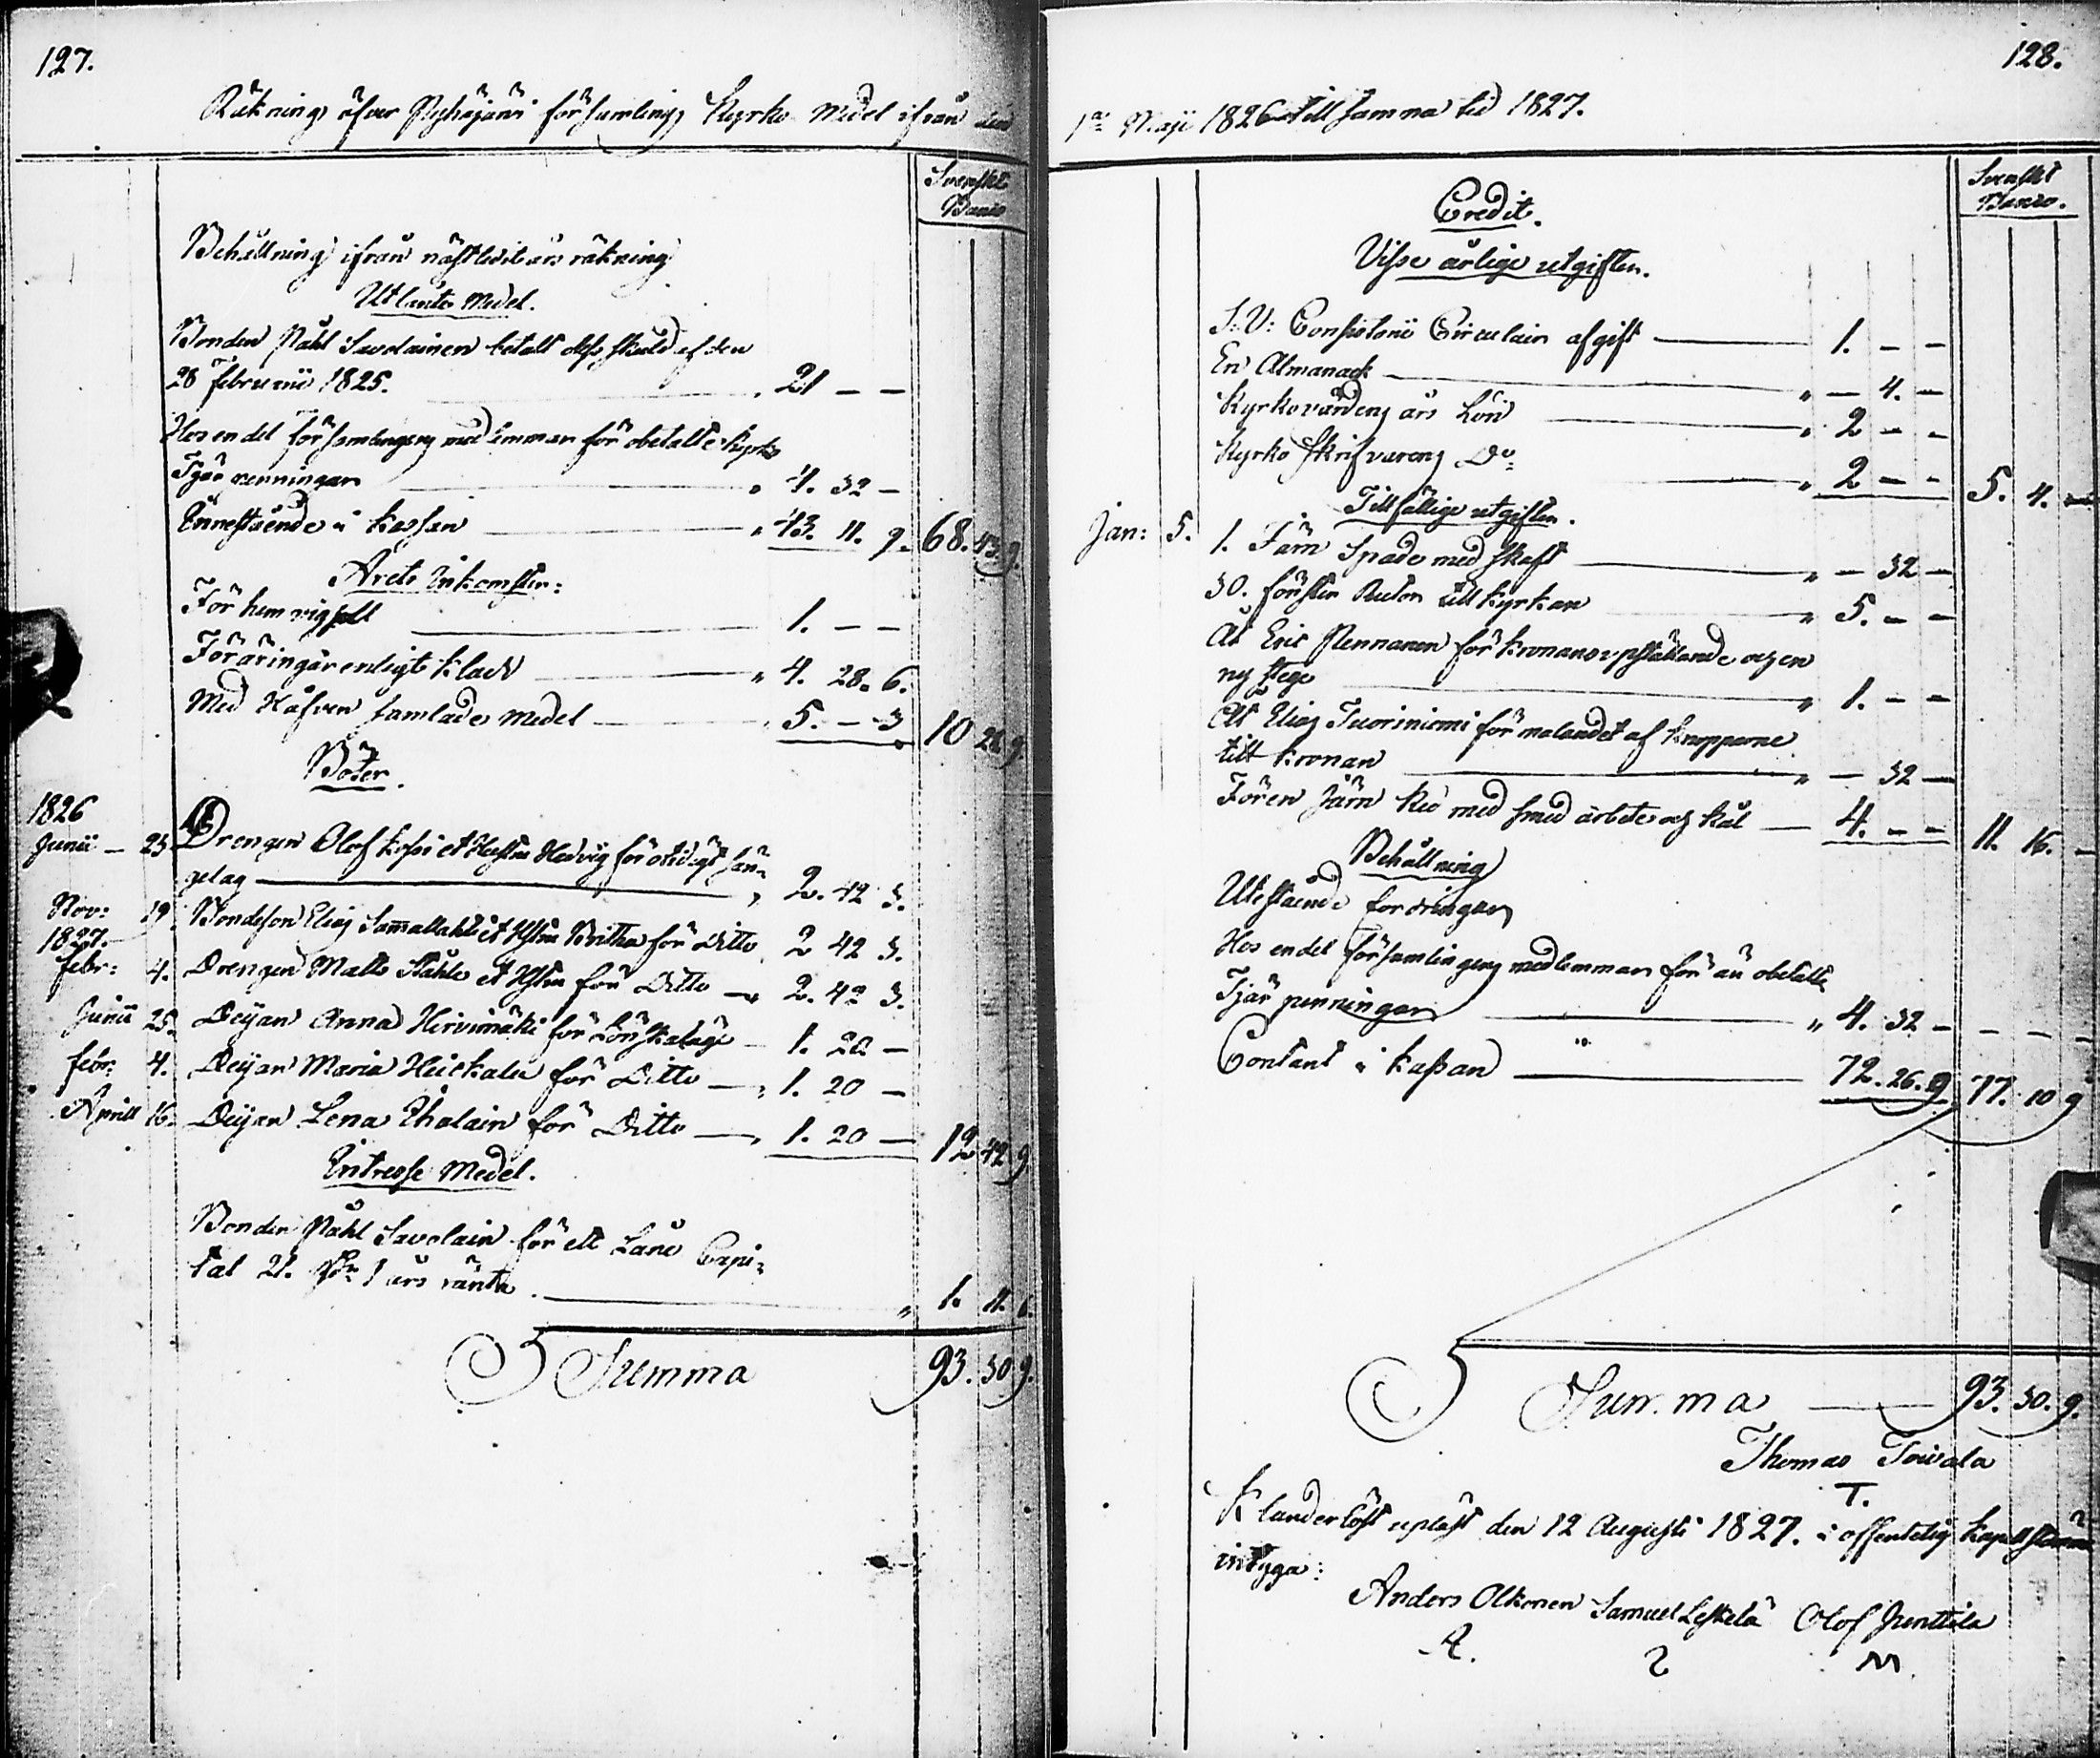 127.
Räkning öfver Pyhäjärvi församlings Kyrko Medel ifrån den
Svenskt
Banco
Behållning ifrån nästledit års räkning
Utlånte Medel.
Bonden Påhl Savolainen betalt dess skuld af den
28 Februarii 1825. " 21 — —
Hos en del församlingens medlemmar för obetalte Kyrko
Tjär penningar " 4. 32 —
Innestående i Kassan " 43. 11. 9. 68. 43. 9.
Årets Inkomster:
För hem vigsell 1. — —
Föräringar enligt Kladd " 4. 28. 6.
Med Håfven samlade medel 5. — 3 10 28 9.
Böter.
1826
Junii — 25 Drengen Olof Kossi et Hustru Hedvig för otidigt sän-
gelag 2. 42 3.
Nov: 19. Bondeson Elias Samallahti et Hstru Britha för Ditto 2 42 3.
1827.
Febr: 4. Drengen Matts Ståhle et Hstru för Ditto 2. 42 3.
Junii 25. Deijan Anna Hirvimäki för Lönskaläge 1. 20 —
Febr: 4. Deijan Maria Heickala för Ditto 1. 20 —
Aprill 16. Deijan Lena Ihalain för Ditto 1. 20 — 12 42 9.
Intresse Medel.
Bonden Påhl Savolain för ett Låne Capi-
tal 21. Rdr 1 års ränta " 1. 11. 6.
Summa 93. 30 9.
128.
1sta Maji 1826 till samma tid 1827.
Svenskt
Banco.
Credit.
Visse årlige utgifter.
S: V: Consistorii Circulair afgift 1. — —
En Almanack " — 4. —
Kyrkovärdens års Lön " 2 — —
Kyrko Skrifvarens Do: " 2 — — 5. 4. —
Tillfällige utgifter.
Jan: 5. 1. Järn Spade med skaft " — 32 —
30. fönster Rutor till Kyrkan " 5. — —
At Eric Pennanen för Kronans upställande och en
ny stege " 1. — —
At Elias Tuoriniemi för malandet af knopparne
till Kronan " — 32 —
För en Järn Ked med smed arbete och kål 4. — — 11. 16. —
Behållning
Utestående fordringar
Hos en del församlingens medlemmar för än obetalte
Tjär penningar " 4. 32 — — — —
Contant i Kassan " 72. 26. 9 77. 10 9
Summa 93. 30. 9.
Thomas Toivola
T.
Klanderlöst upläst den 12 Augusti 1827. i offentelig Kapell stämma
intyga:
Anders Olkonen Samuel Leskelä Olof Junttila
A. 2 M.